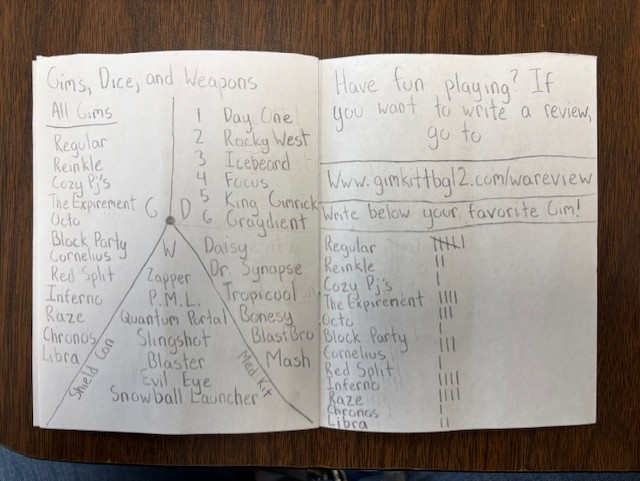 Gims, Dice, and Weapons
All Gims
Regular
Reinkle
Cozy Pj's
The Expirement
Octo
Block Party
Cornelius
Red Split
Inferno
Raze
Chronos
Libra
G
D
1 Day One
2 Rocky West
3 Icebeard
4 Focus
5 King Gimrick
6 Graydient
Daisy
Dr. Synapse
Tropicool
Bonesy
BlastBro
Mash
W
Zapper
P.M.L.
Quantum Portal
Slingshot
Blaster
Evil Eye
Snowball Launcher
Shield Can
Med Kit
Have fun playing? If
you want to write a review,
go to
Www.gimkittbgl2.com/wareview
Write below your favorite Gim!
Regular
Reinkle
Cozy Pj's
The Expirement
Octo
Block Party
Cornelius
Red Split
Inferno
Raze
Chronos
Libra